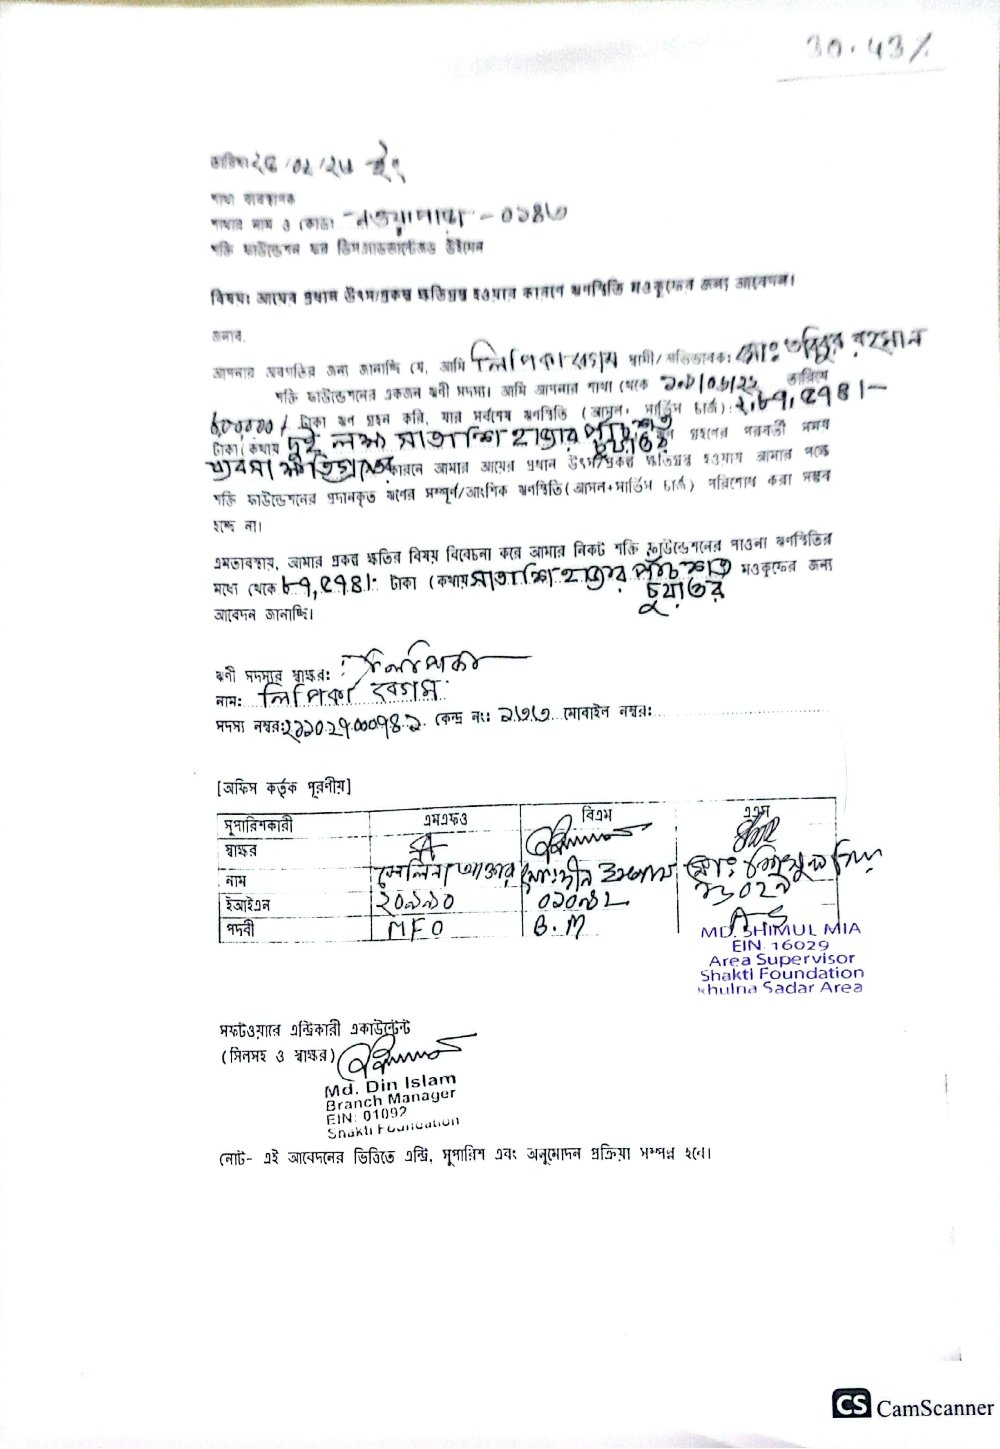 30.43%
তারিখঃ
শাখা ব্যবস্থাপক
শাখার নাম ও কোডঃ নওয়াপাড়া - ০১৪৩
শক্তি ফাউন্ডেশন ফর ডিসএডভান্টেজড উইমেন
বিষয়ঃ আয়ের প্রধান উৎস/প্রকল্প ক্ষতিগ্রস্ত হওয়ার কারণে ঋণস্থিতি মওকুফের জন্য আবেদন।
জনাব,
আপনার অবগতির জন্য জানাচ্ছি যে, আমি লিপিকা বেগম স্বামী/অভিভাবক: মোঃ রহমান
শক্তি ফাউন্ডেশনের একজন ঋণী সদস্য। আমি আপনার শাখা থেকে তারিখে
টাকা ঋণ গ্রহন করি, যার সর্বশেষ ঋণস্থিতি (আসল+ সার্ভিস চার্জ): ২,৮৭,৫৭৪/-
টাকা (কথায় দুই লক্ষ সাতাশি হাজার পাঁচ শত চুয়াত্তর ঋণ গ্রহণের পরবর্তী সময়
ব্যবসা ক্ষতিগ্রস্তের কারনে আমার আয়ের প্রধান উৎস/প্রকল্প ক্ষতিগ্রস্ত হওয়ায় আমার পক্ষে
শক্তি ফাউন্ডেশনের প্রদানকৃত ঋনের সম্পূর্ণ/আংশিক ঋণস্থিতি(আসল+সার্ভিস চার্জ) পরিশোধ করা সম্ভব
হচ্ছে না।
এমতাবস্থায়, আমার প্রকল্প ক্ষতির বিষয় বিবেচনা করে আমার নিকট শক্তি ফাউন্ডেশনের পাওনা ঋণস্থিতির
মধ্যে থেকে ৮৭,৫৭৪/- টাকা (কথায় সাতাশি হাজার পাঁচ শত চুয়াত্তর মওকুফের জন্য
আবেদন জানাচ্ছি।
ঋণী সদস্যর স্বাক্ষর: লিপিকা
নাম: লিপিকা বেগম
সদস্য নম্বর: কেন্দ্র নং: মোবাইল নম্বর:
[অফিস কর্তৃক পূরণীয়]
সুপারিশকারী এমএফও বিএম এএস
স্বাক্ষর
নাম সেলিনা আক্তার মোঃ দীন ইসলাম মোঃ শিমুল মিয়া
ইআইএন ২০৯৯০ ০১০৯২ ১৬০২৯
পদবী MFO B.M A.S
MD. SHIMUL MIA
EIN 16029
Area Supervisor
Shakti Foundation
Khulna Sadar Area
সফটওয়ারে এন্ট্রিকারী একাউন্টেন্ট
(সিলসহ ও স্বাক্ষর)
Md. Din Islam
Branch Manager
EIN: 01092
Shakti Foundation
নোট- এই আবেদনের ভিত্তিতে এন্ট্রি, সুপারিশ এবং অনুমোদন প্রক্রিয়া সম্পন্ন হবে।
CS CamScanner